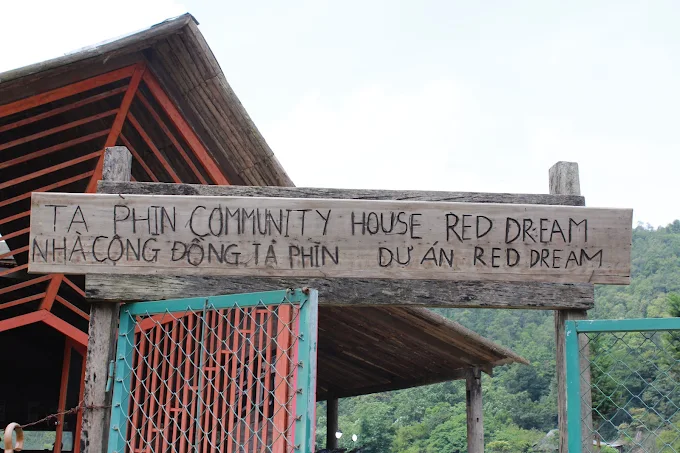 TA PHÌN COMMUNITY HOUSE RED DREAM
NHÀ CỘNG ĐỒNG TẢ PHÌN DỰ ÁN RED DREAM